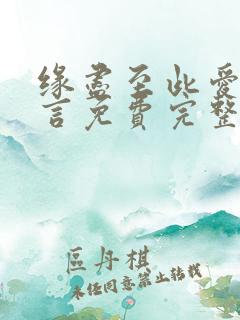 缘尽至此爱
言免费完整
區丹棋
未经同意禁止转载